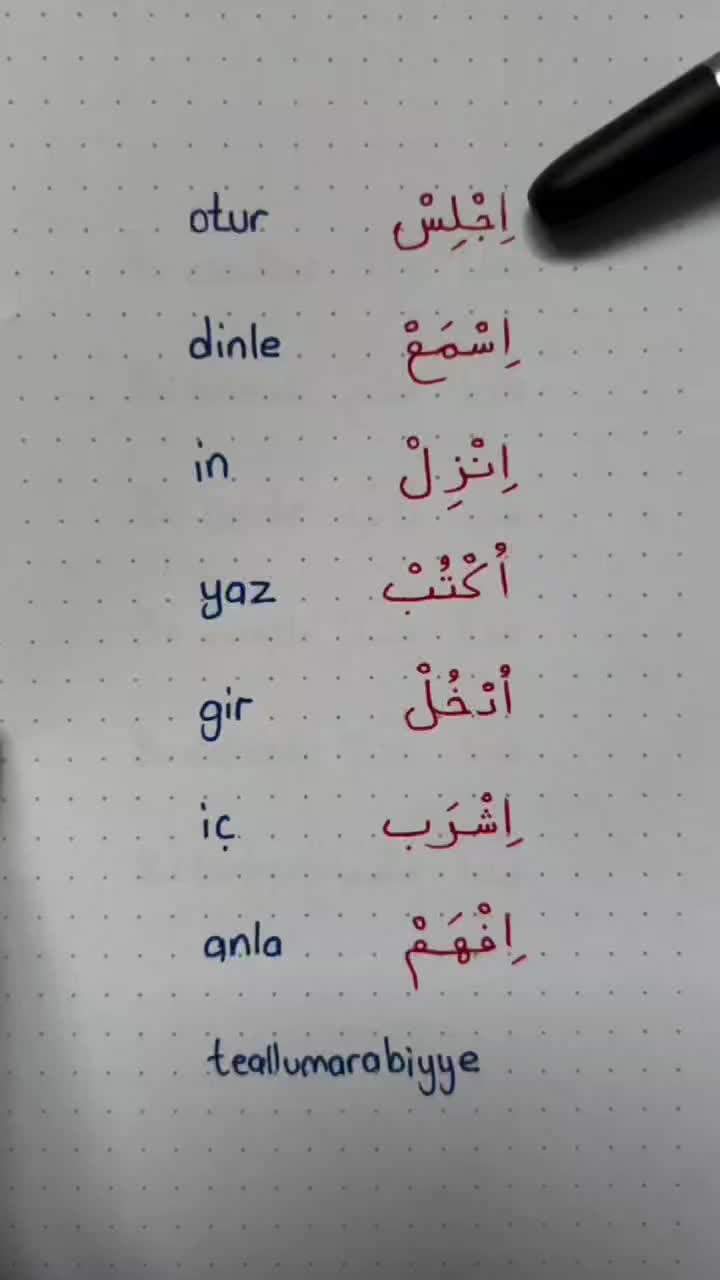 otur اِجْلِسْ
dinle اِسْمَعْ
in اِنْزِلْ
yaz اُكْتُبْ
gir اُدْخُلْ
iç اِشْرَب
anla اِفْهَمْ
teallumarabiyye